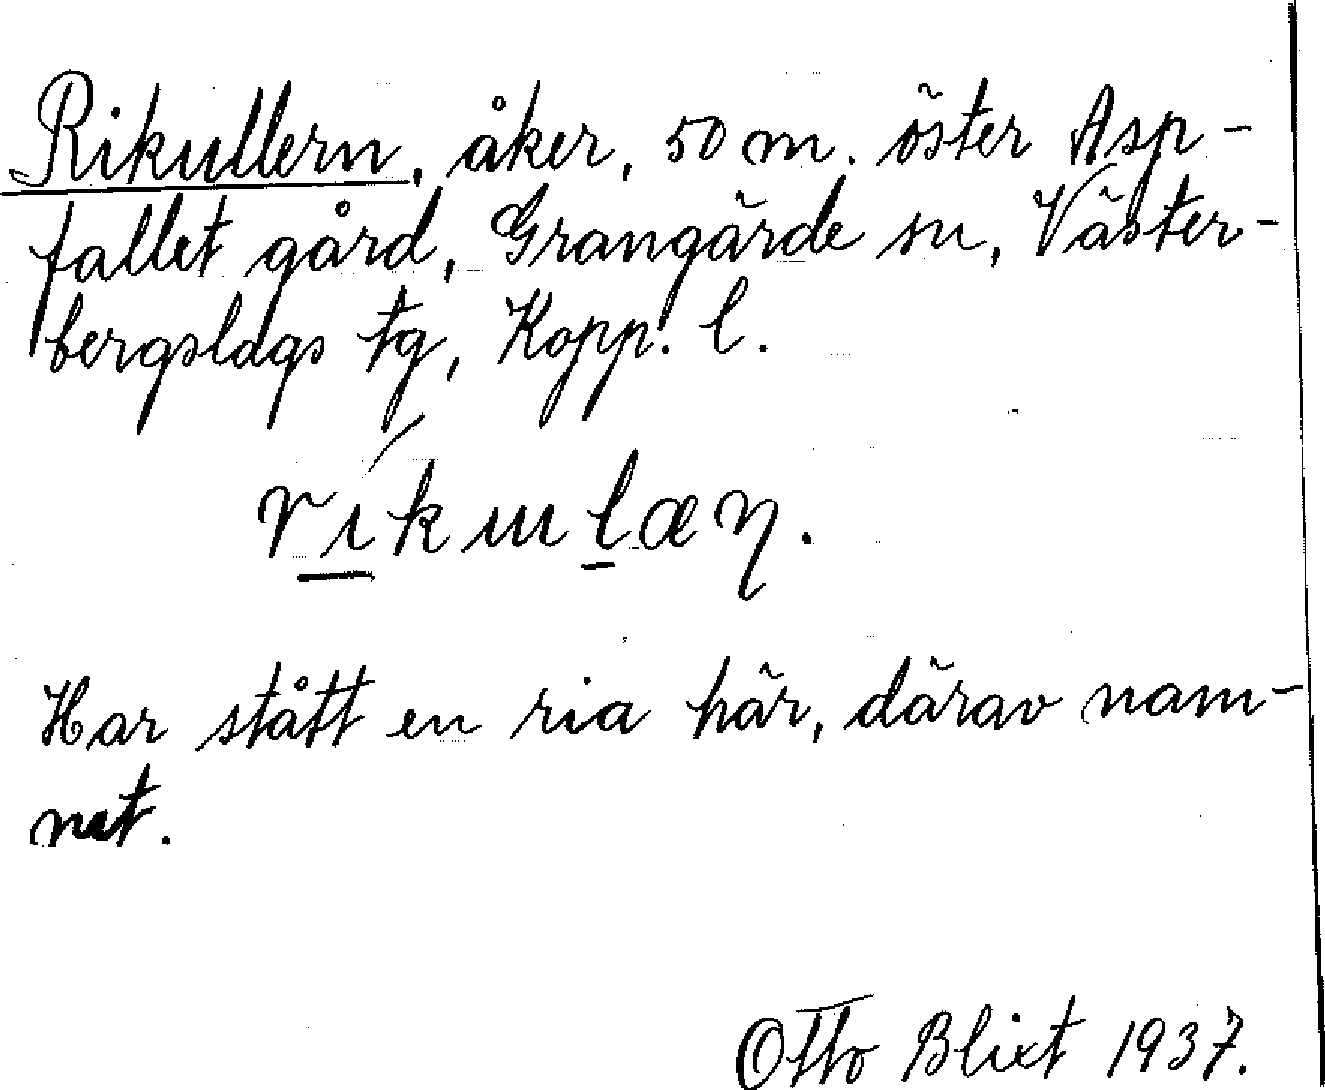 Rikullern, åker, 50 m. öster Asp-
fallet gård, Grangärde sn, Väster-
bergslags tg, Kopp. l.
ríkulæn.
Har stått en ria här, därav nam-
net.
Otto Blixt 1937.